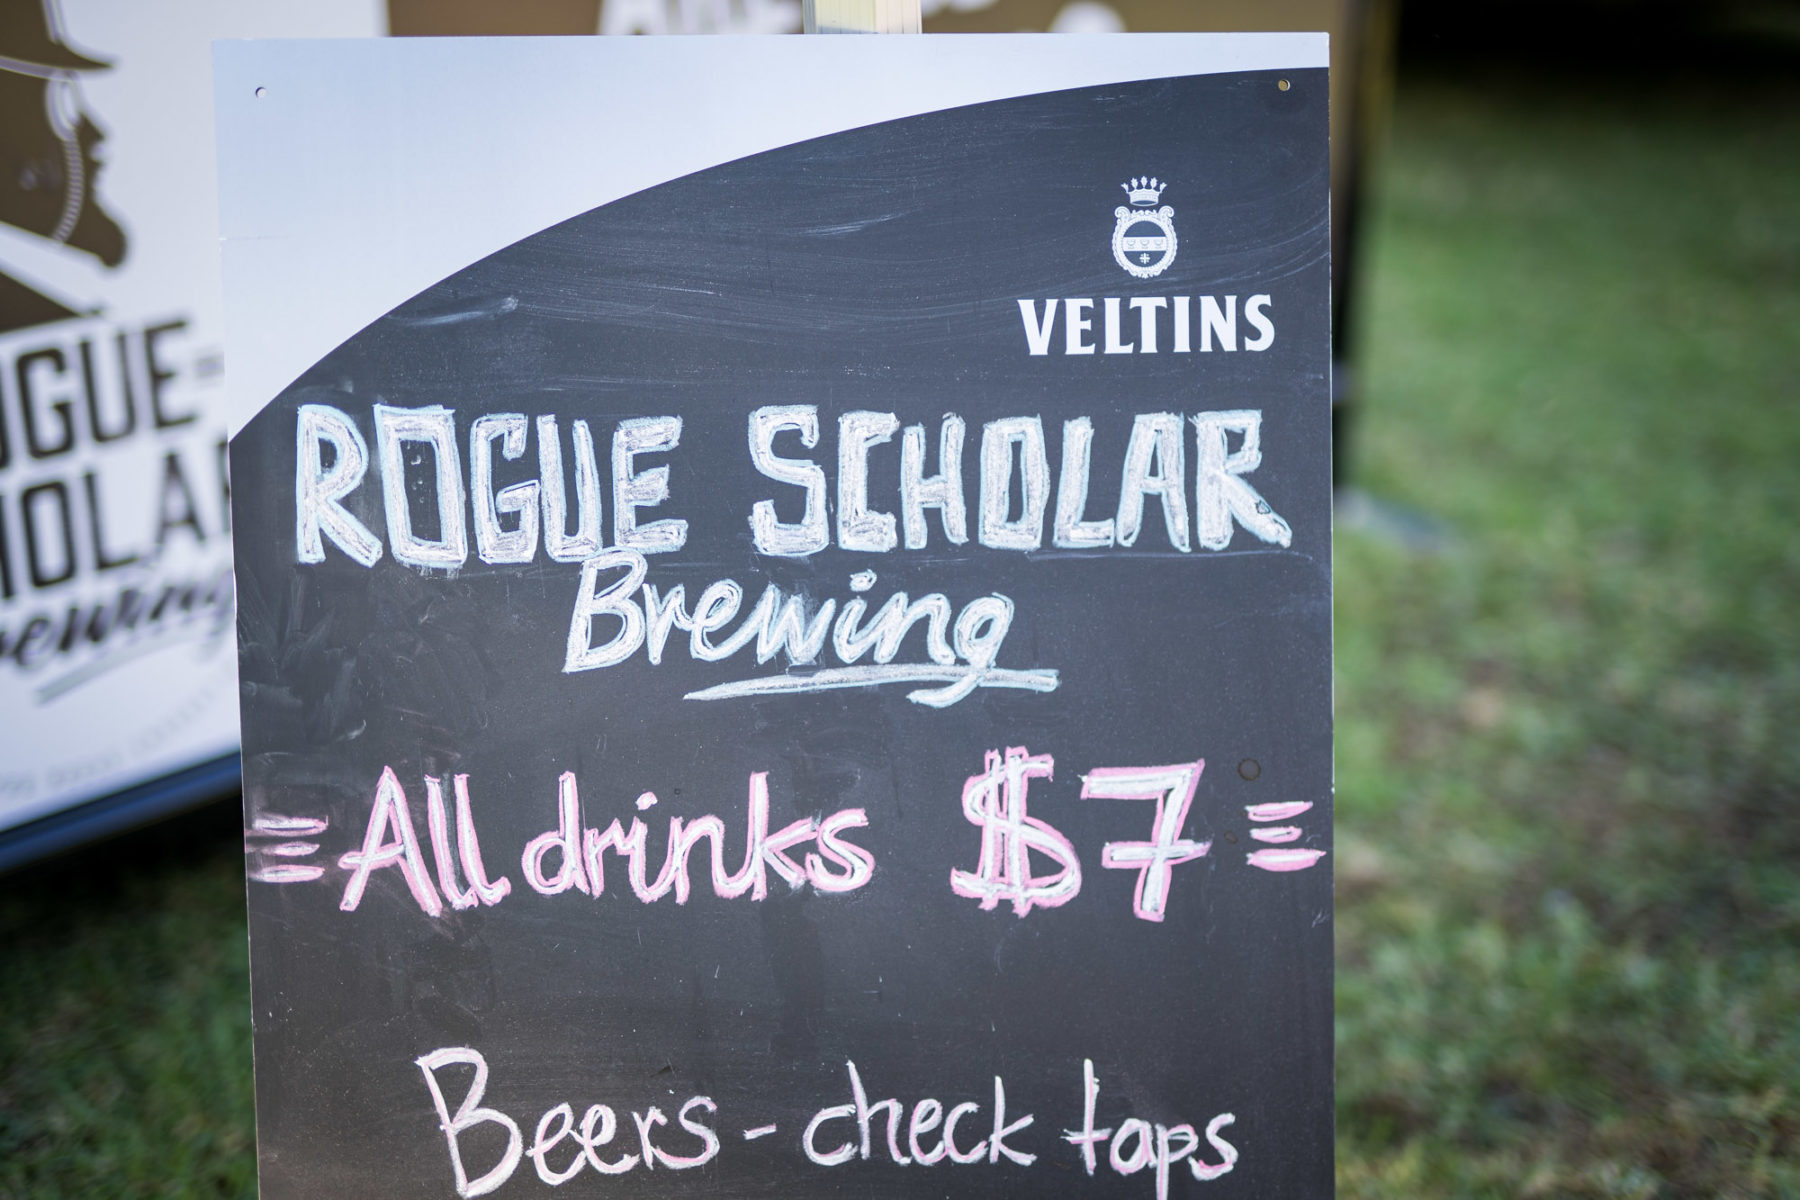 VELTINS
ROGUE SCHOLAR
Brewing
All drinks $7
Beers - check taps
OGUE
HOLAR
rewing